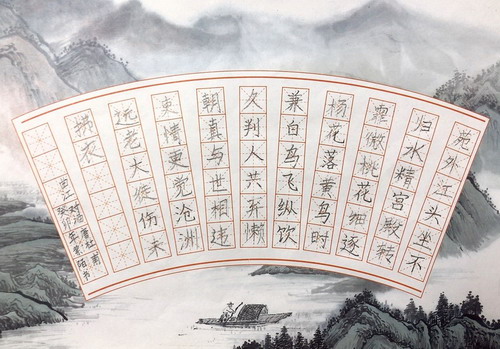 苑外江头坐不
归水精宫殿转
霏微桃花细逐
杨花落黄鸟时
兼白鸟飞纵饮
久判人共弃懒
朝真与世相违
吏情更觉沧洲
远老大徒伤未
拂衣
曲江对酒唐杜甫